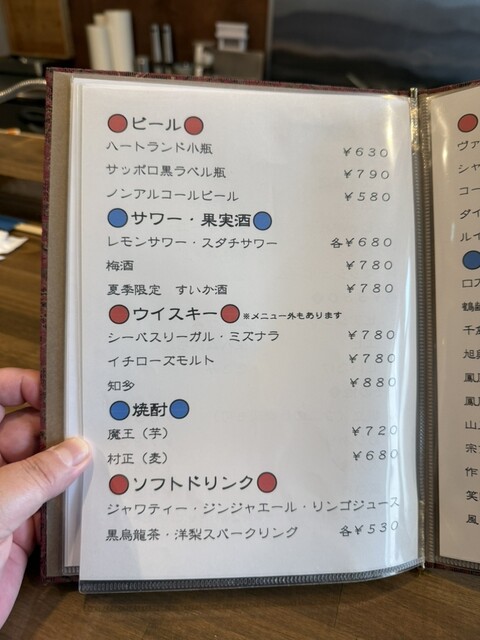 ビール
ハートランド小瓶 ¥630
サッポロ黒ラベル瓶 ¥790
ノンアルコールビール ¥580
サワー・果実酒
レモンサワー・スダチサワー 各¥680
梅酒 ¥780
夏季限定 すいか酒 ¥780
ウイスキー ※メニュー外もあります
シーバスリーガル・ミズナラ ¥780
イチローズモルト ¥780
知多 ¥880
焼酎
魔王（芋） ¥720
村正（麦） ¥680
ソフトドリンク
ジャワティー・ジンジャエール・リンゴジュース
黒烏龍茶・洋梨スパークリング 各¥530